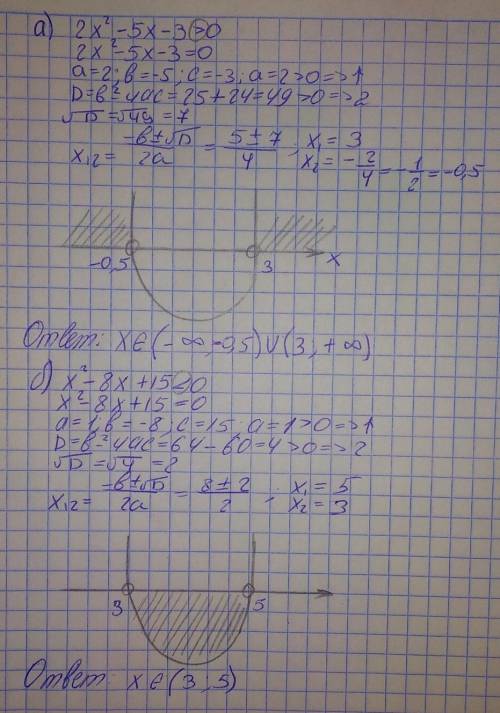 а) 2x²-5x-3>0
2x²-5x-3=0
a=2; b=-5; c=-3; a=2>0=>↑
D=b²-4ac=25+24=49>0=>2
√D=√49=7
x₁,₂= -b±√D / 2a = 5±7 / 4 ; x₁=3
x₂=-2/4=-1/2=-0,5
-0,5 3 x
Ответ: x∈(-∞;-0,5)∪(3;+∞)
б) x²-8x+15<0
x²-8x+15=0
a=1; b=-8; c=15; a=1>0=>↑
D=b²-4ac=64-60=4>0=>2
√D=√4=2
x₁,₂= -b±√D / 2a = 8±2 / 2 ; x₁=5
x₂=3
3 5
Ответ: x∈(3;5)